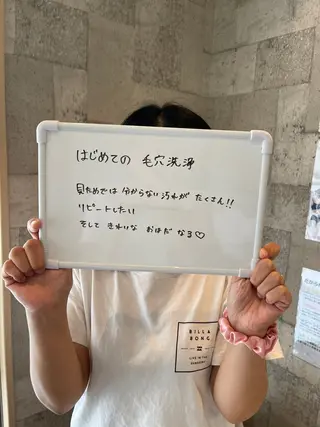 はじめての 毛穴洗浄
見ためでは 分からない汚れが たくさん!!
リピートしたい
そして きれいな おはだ なる♡
BILLA
BONG